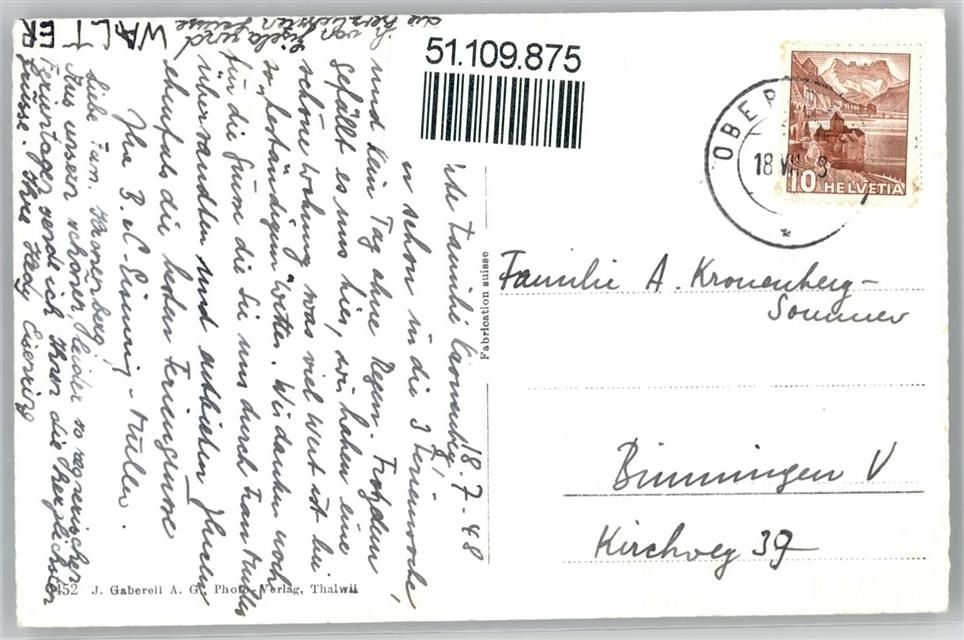 51.109.875
OBER
18 VII
10 HELVETIA
Familie A. Kronenberg-
Sommer
Binningen
Kirchweg 39
Fabrication suisse
18.7.48
Familie Kronenberg!
schon in die 3 Ferienwoche,
und kein Tag ohne Regen. Trotzdem
gefällt es uns hier, wir haben eine
schöne Wohnung was viel Wert ist bei
Wetter. Wir danken noch
für die Grüsse die Sie uns durch Frau Müller
und
ebenfalls die besten Feriengrüsse
Ihre
Müller.
Liebe Fam. Kronenberg!
Aus unsern schönen, leider so regnerischen
Ferientagen sende ich Ihnen die herzlichsten
Grüsse. Ihre Hedy
die herzlichsten Grüsse
von
Gisela und
WALTER
6452 J. Gaberell A. G., Photo-Verlag, Thalwil